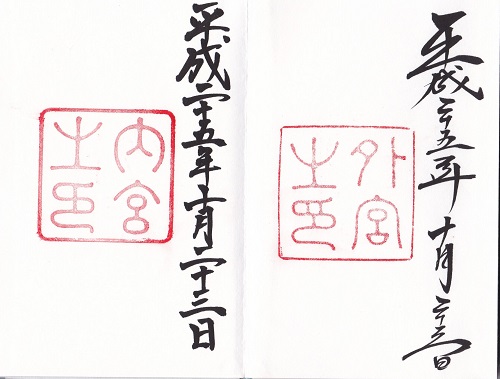 平成二十五年十月二十三日
外宮
之印
平成二十五年十月二十三日
内宮
之印